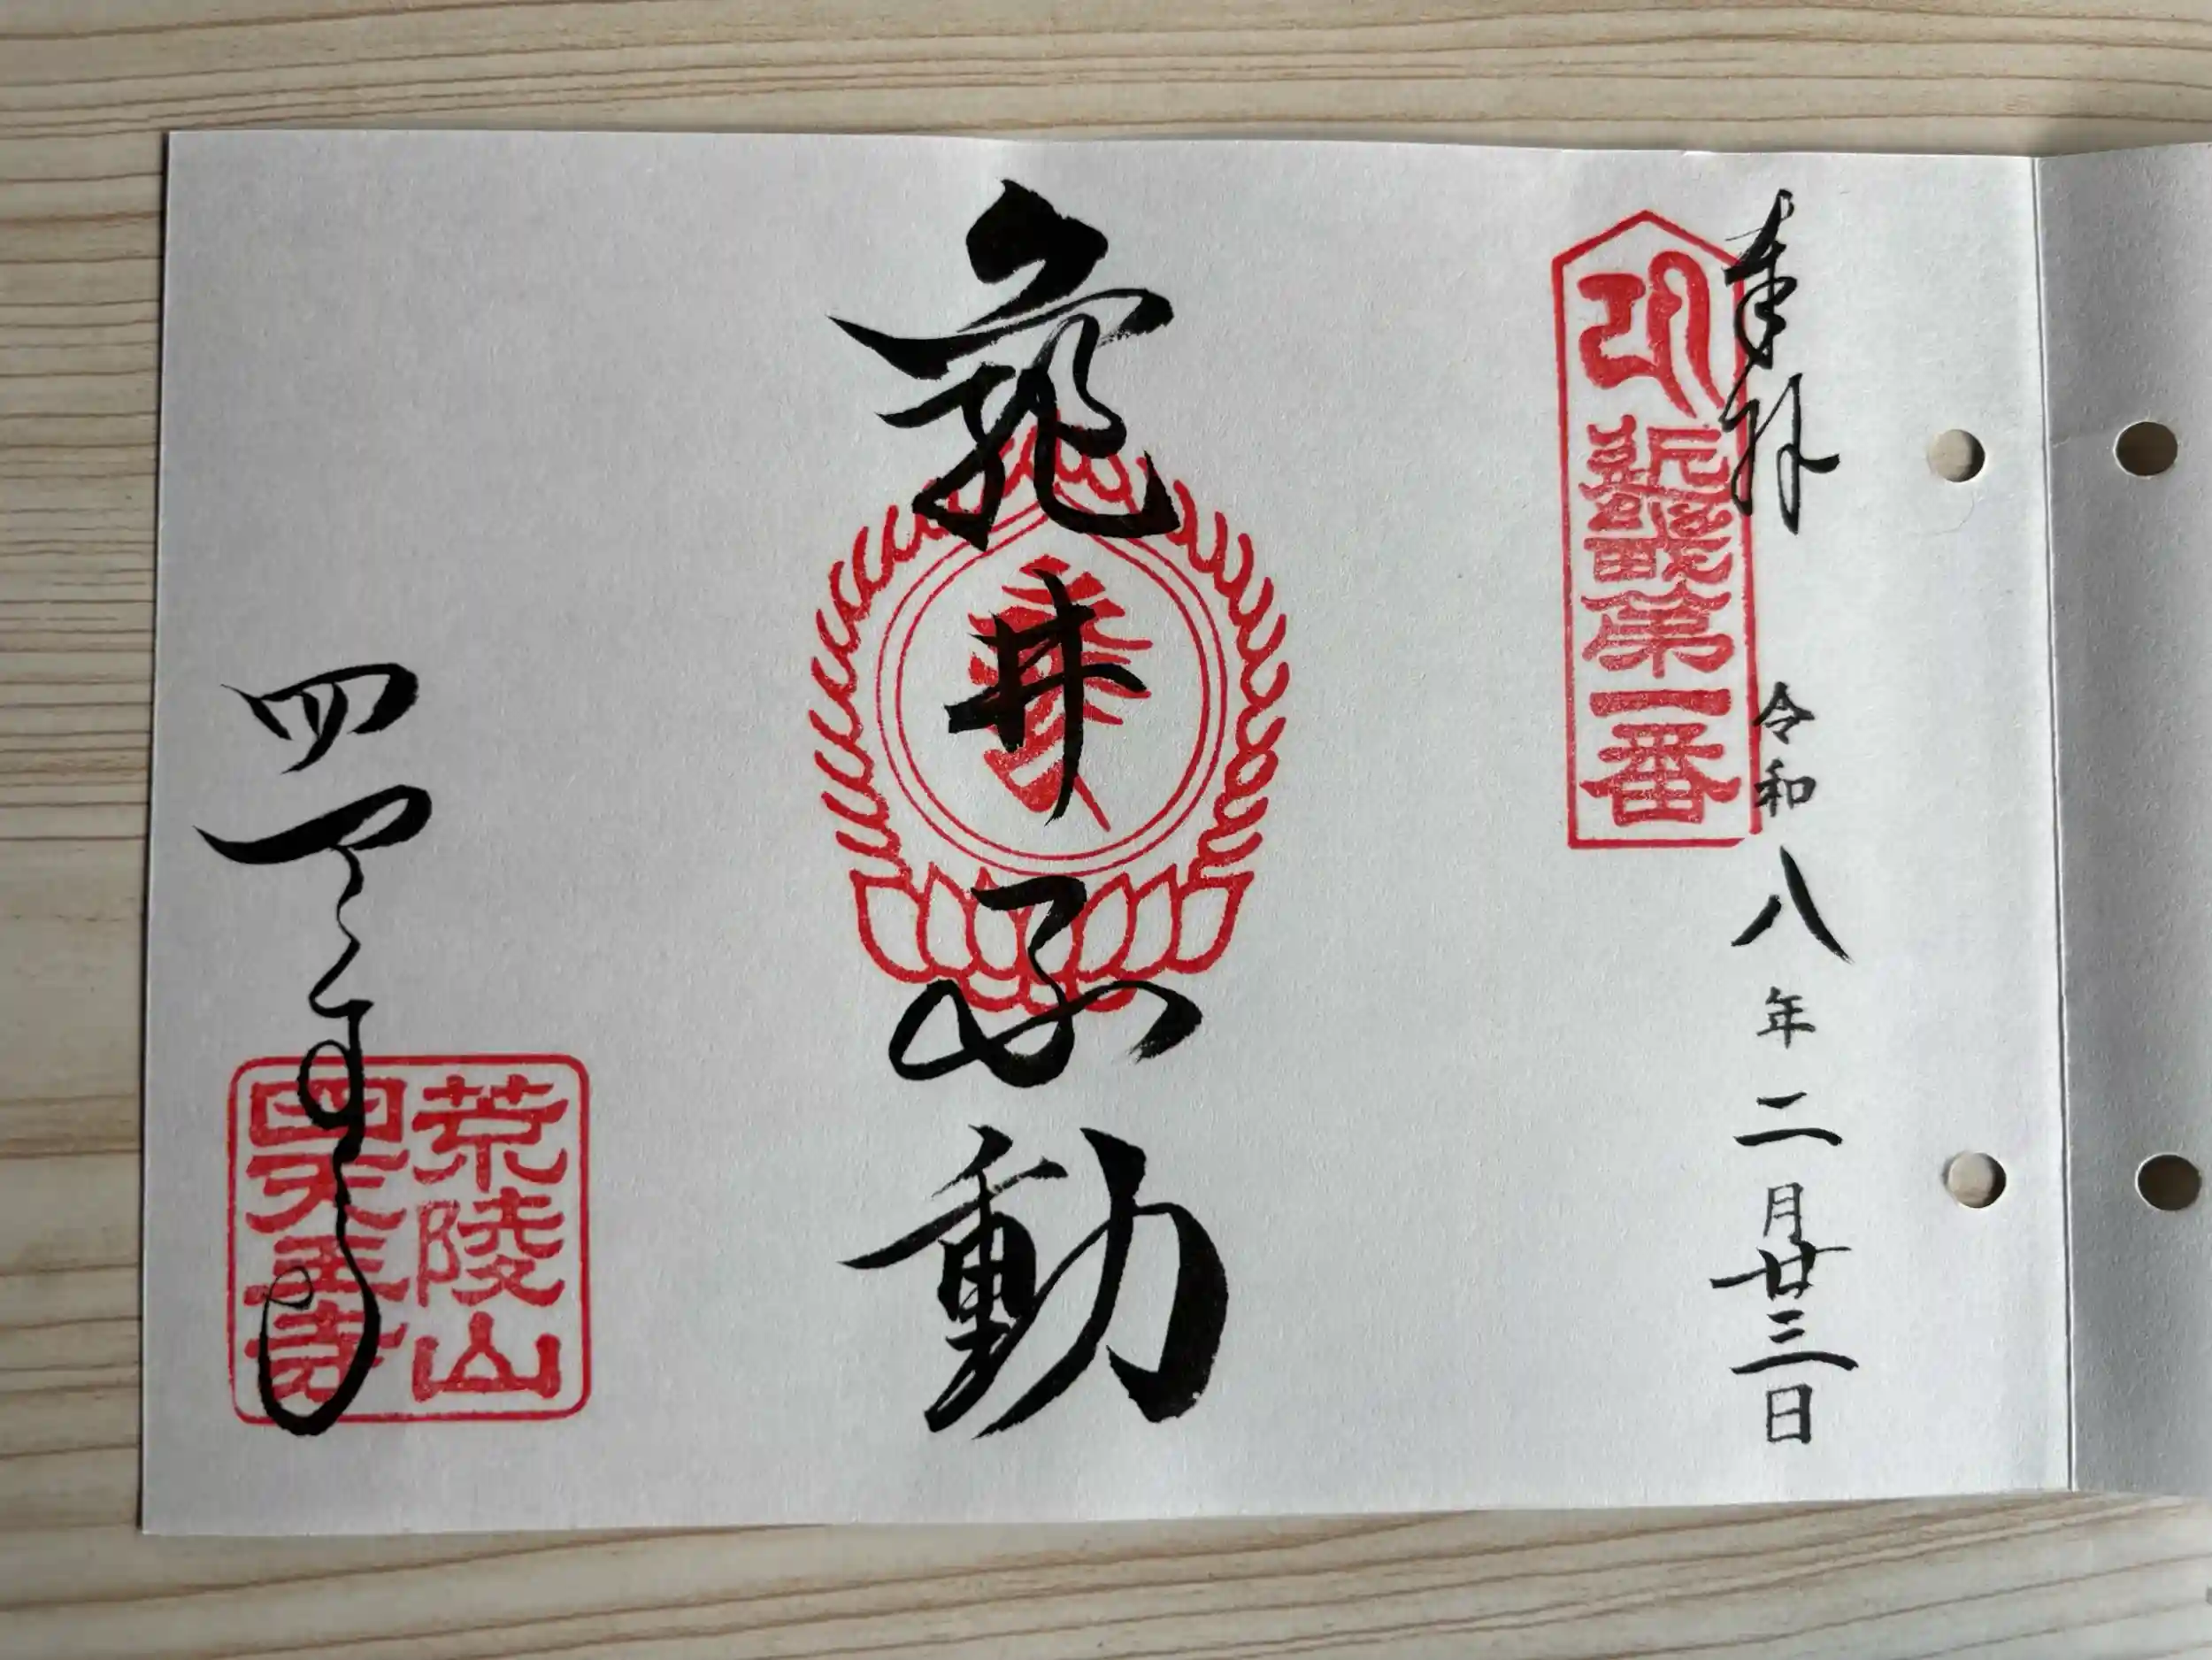 奉拝
令和八年二月廿三日
近畿第一番
亀井不動
四天王寺
荒陵山
四天王寺